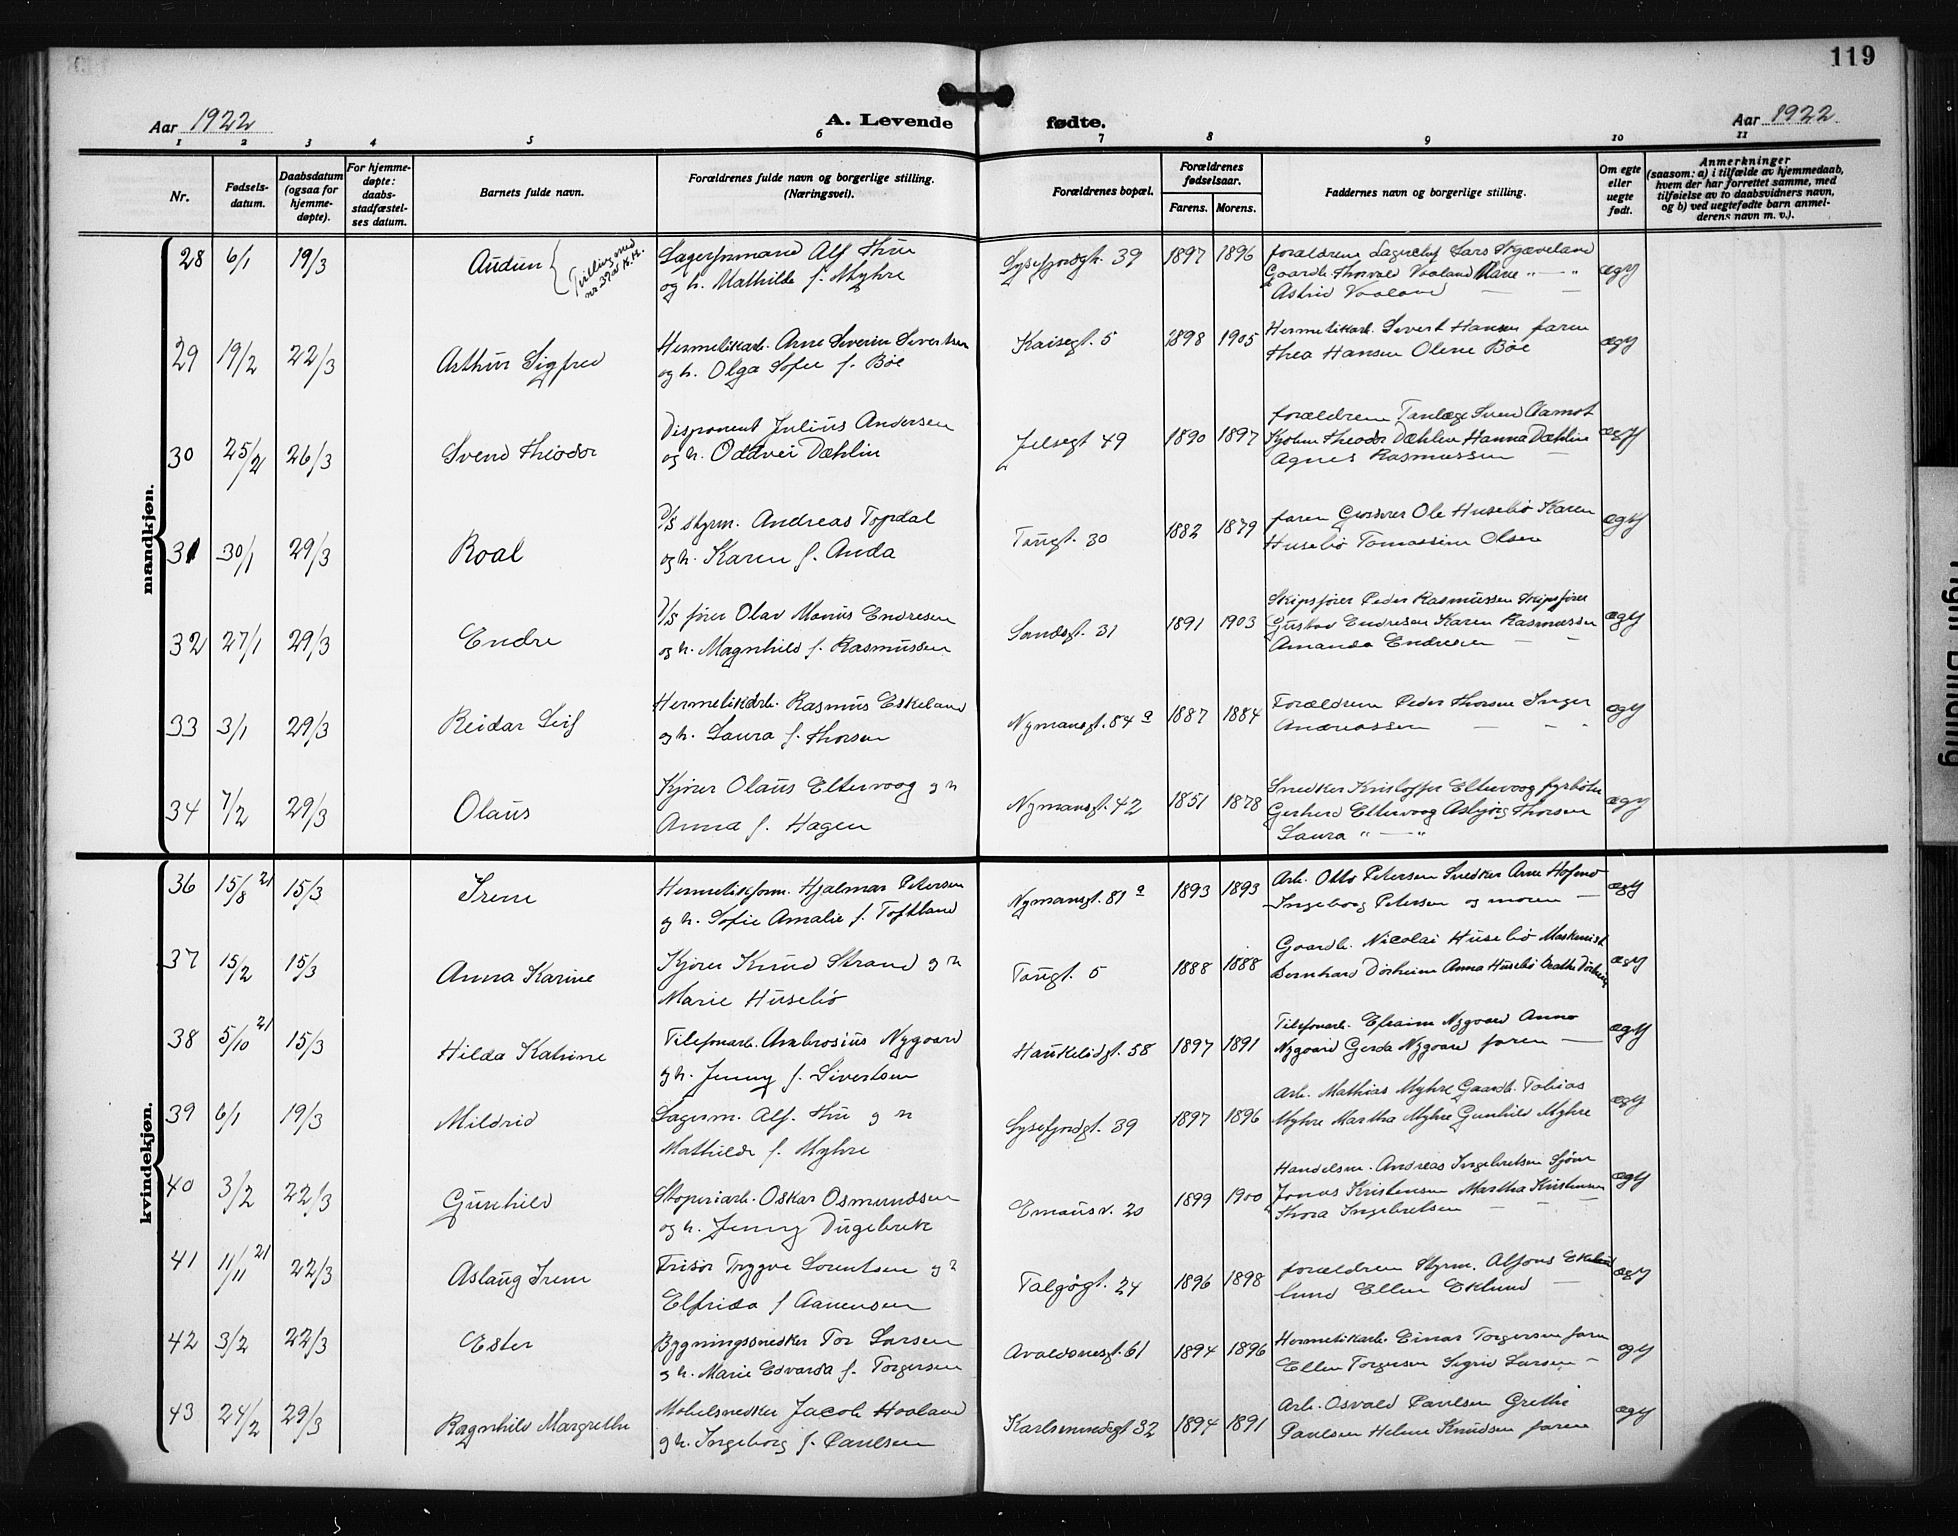 119
Aar 1922
A. Levende fødte.
Aar 1922
1 2 3 4 5 6 7 8 9 10 11
Nr.
Fødsels-
datum.
Daabsdatum
(ogsaa for
hjemme-
døpte).
For hjemme-
døpte:
daabs-
stadfæstel-
ses datum.
Barnets fulde navn.
Forældrenes fulde navn og borgerlige stilling.
(Næringsvei).
Forældrenes bopæl.
Forældrenes
fødselsaar.
Farens. Morens.
Faddernes navn og borgerlige stilling.
Om egte
eller
uegte
født.
Anmerkninger
(saasom: a) i tilfælde av hjemmedaab,
hvem der har forrettet samme, med
tilføielse av to daabsvidners navn,
og b) ved uegtefødte barn anmel-
derens navn m. v.).
mandkjøn.
28 6/1 19/3 Audun
Tvilling med
nr. 39 av K.K.
Lagerformand Alf Thu
og h. Mathilde f. Myhre
Lysefjordgt. 39 1897 1896
foraldrene Lagerchef Lars Skjæveland
Gaardb. Thorvald Vaaland Marie " — "
Astrid Vaaland — —
ægte
29 19/2 22/3 Arthur Sigfred
Hermetikarb. Arne Severin Sivertsen
og h. Olga Sofie f. Bøe
Kaisegt. 5 1898 1905
Hermetikarb. Sivert Hansen faren
Thea Hansen Olene Bøe
ægte
30 25/2 26/3 Svend Theodor
Disponent Julius Andersen
og h. Oddvei Dæhlin
Jelsegt 49 1890 1897
forældrene Tanlæge Svend Aamot
Kjøbm Theodor Dæhlin Hanna Dæhlin
Agnes Rasmussen —
ægte
31 30/1 29/3 Roal
D/S styrm. Andreas Topdal
og h. Karen f. Anda
Taugt. 30 1882 1879
faren Ole Husebø Karen
Husebø Tomassine Olsen
ægte
32 27/1 29/3 Endre
D/S fører Olav Marius Endresen
og h. Magnhild f. Rasmussen
Sandsgt. 31 1891 1903
Skipsfører Peder Rasmussen Skipsfører
Gustav Endresen Karen Rasmussen
Amanda Endresen — —
ægte
33 3/1 29/3 Reidar Leif
Hermetikarb. Rasmus Eskeland
og h. Laura f. Thorsen
Nymansgt. 84 a 1887 1884
Forældrene Peder Thorsen Inger
Andreassen — —
ægte
34 7/2 29/3 Olaus
Kjører Olaus Eltervoog og h
Anna f. Hagen
Nymansgt. 42 1851 1878
Snedker Kristoffer Eltervoog fyrbøter
Gerhard Eltervoog Asbjørg Thorsen
Laura " — "
ægte
kvindekjøn.
36 15/8 21 15/3 Irene
Hermetikform. Hjalmar Petersen
og h. Sofie Amalie f. Toftland
Nymansgt. 81 a 1893 1893
Arb. Otto Petersen Snedker Arne
Ingeborg Petersen og moren —
ægte
37 15/2 15/3 Anna Karine
Kjører Knud Strand og h
Marie Husebø
Taugt. 5 1888 1888
Gaardb. Nicolai Husebø Maskinist
Bernhard Dirheim Anna Husebø
ægte
38 5/10 21 15/3 Hilda Katrine
Telefonarb. Ambrosius Nygaard
og h. Jenny f. Sivertsen
Haukelidgt. 58 1897 1891
Telefonarb. Efraim Nygaard Anna
Nygaard Gerda Nygaard faren —
ægte
39 6/1 19/3 Mildrid
Lagerm. Alf. Thu og h
Mathilde f. Myhre
Lysefjordgt. 39 1897 1896
Arb. Mathias Myhre Gaardb. Tobias
Myhre Martha Myhre Gunhild Myhre
ægte
40 3/2 22/3 Gunhild
Støperiarb. Oskar Osmundsen
og h. Jenny
Emausv. 20 1899 1900
Handelsm. Andreas Ingebretsen Sjøm
Jonas Kristensen Martha Kristensen
Thora Ingebretsen — —
ægte
41 11/11 21 22/3 Aslaug Irene
Frisør Trygve Lorentsen og h
Elfrida f Aanensen
Talgøgt. 24 1896 1898
forældrene Styrm. Alfons Ek-
lund Ellen Eklund —
ægte
42 3/2 22/3 Ester
Bygningssnedker Tor Larsen
og h. Marie Edvarda f. Torgersen
Avaldsnesgt. 61 1894 1896
Hermetikarb. Einar Torgersen faren
Ellen Torgersen Sigrid Larsen —
ægte
43 24/2 29/3 Ragnhild Margrethe
Møbelsnedker Jacob Haaland
og h. Ingeborg f. Paulsen
Karlsmindegt 32 1894 1891
Arb. Osvald Paulsen Grethe
Paulsen Helene Knudsen faren
ægte